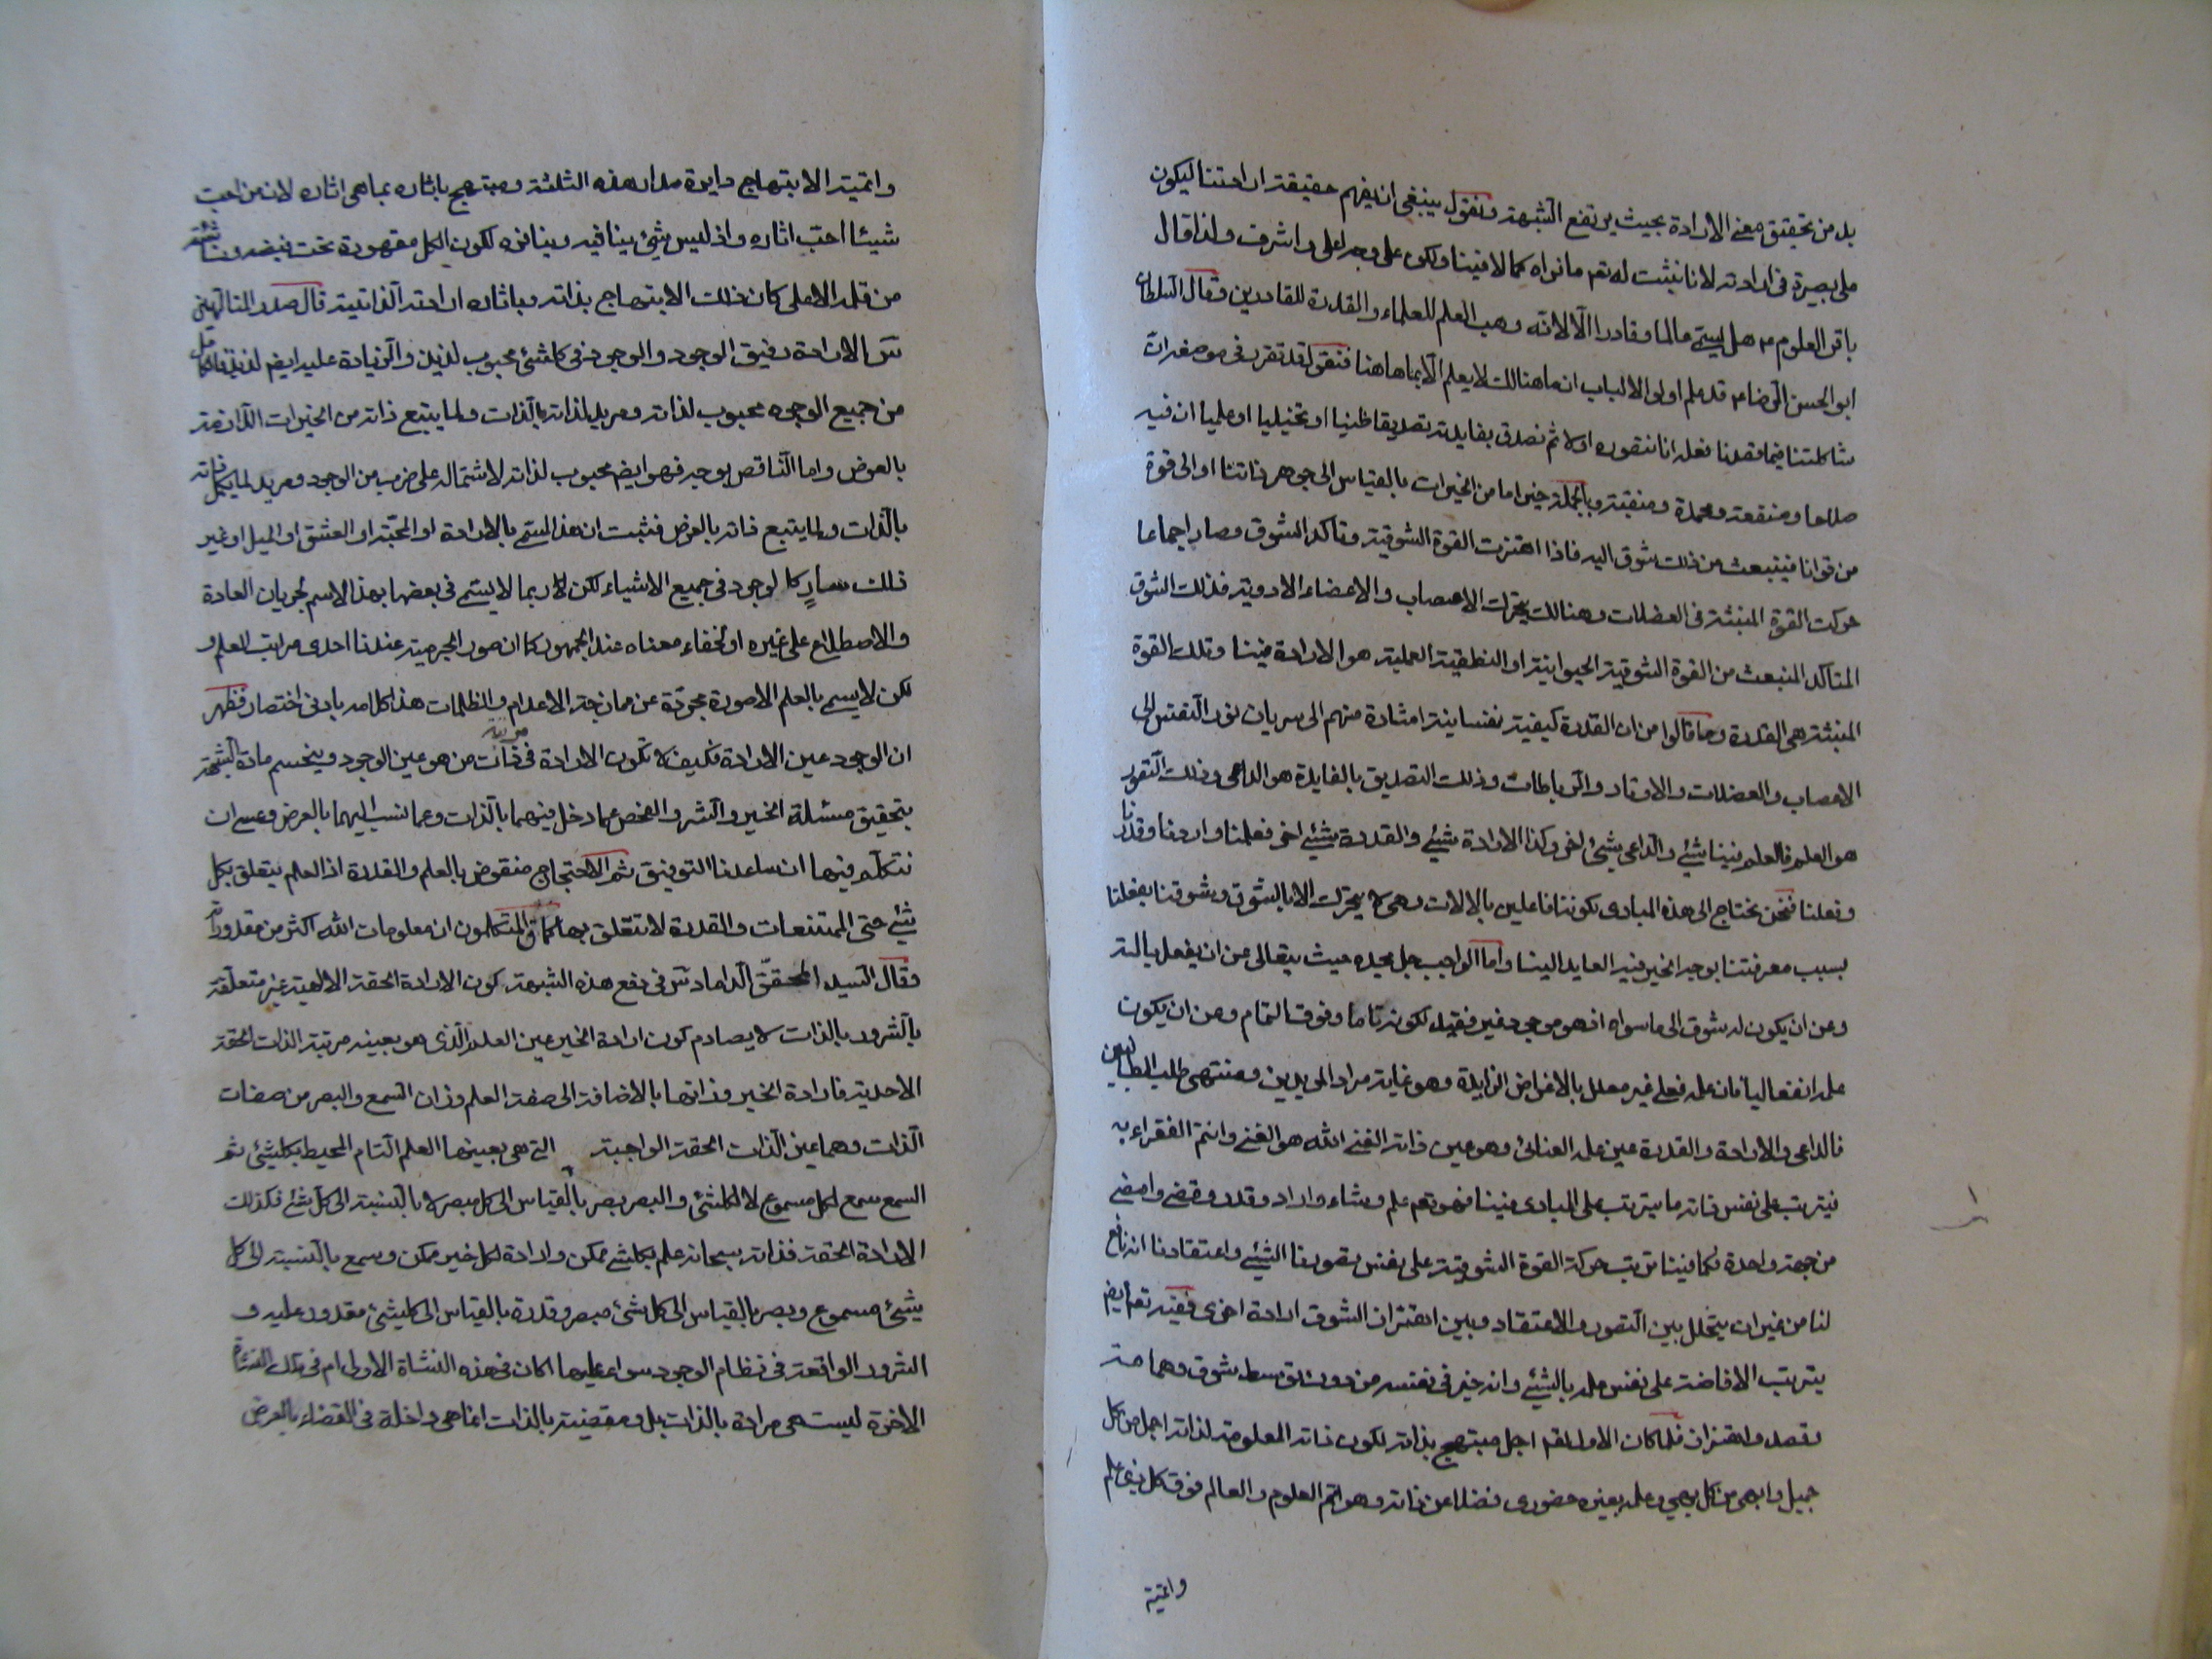 بد من تحقيق معنى الارادة بحيث يرتفع الشبهة ونقول ينبغى ان يفهم حقيقة ارادتنا ليكون
على بصيرة فى ارادته لانا نثبت له تعم ما نراه كمالا فينا ولكن على وجه اعلى واشرف ولذا قال
باقر العلوم ع هل يسمى عالما وقادرا الّا لانّه وهب العلم للعلماء والقدرة للقادرين وقال السلطان
ابو الحسن الرضا ع قد علم اولو الالباب ان ما هنالك لا يعلم الّا بما هاهنا فنقول قد تقرر فى موضعه ان
شاكلتنا فيما قصدنا فعله انا نتصوره اولا ثم نصدق بفايدته تصديقا ظنيا او تخيليا او علميا ان فيه
صلاحا ومنفعة ومحمدة ومنقبة وبالجملة خيرا ما من الخيرات بالقياس الى جوهر ذاتنا او الى قوة
من قوانا فينبعث من ذلك شوق اليه فاذا اهتزت القوة الشوقية وتاكد الشوق وصار اجماعا
حركت القوة المنبثة فى العضلات وهنالك يتحرك الاعصاب والاعضاء الادوية فذلك الشوق
المتاكد المنبعث من القوة الشوقية الحيوانية او النطقية العملية هو الارادة فينا وتلك القوة
المنبثة هى القدرة وما قالوا من ان القدرة كيفية نفسانية اشارة منهم الى سريان نور النفس الى
الاعصاب والعضلات والاوتار والرباطات وذلك التصديق بالفايدة هو الداعى وذلك التصور
هو العلم فالعلم فينا شئ والداعى شئ اخر وكذا الارادة شئ والقدرة شئ اخر فعلمنا واردنا وقدرنا
وفعلنا فنحن نحتاج الى هذه المبادى لكوننا فاعلين بالالات وهى لا يتحرك الا بالشوق وشوقنا بفعلنا
بسبب معرفتنا بوجه الخير فيه العايد الينا واما الواجب جل مجده حيث يتعالى من ان يفعل بالة
وعن ان يكون له شوق الى ما سواه اذ هو موجود غير فقيد لكونه تاما وفوق التمام وعن ان يكون
علمه انفعاليا فان علمه فعلى غير معلل بالاغراض الزايدة وهو غاية مراد المريدين ومنتهى طلب الطالبين
فالداعى والارادة والقدرة عين علمه العنائى وهو عين ذاته الغنى الله هو الغنى وانتم الفقراء به
فيترتب على نفس ذاته ما يترتب على المبادى فينا فهو تعم علم وشاء واراد وقدر وقضى وامضى
من جهة واحدة فكما فينا ترتب حركة القوة الشوقية على نفس تصورنا الشئ واعتقادنا انه نافع
لنا من غير ان يتخلل بين التصور والاعتقاد وبين اهتزاز الشوق ارادة اخرى ففيه تعم ايضا
يترتب الافاضة على نفس علمه بالشئ وانه خير فى نفسه من دون توسط شوق وهمامة
وقصد واهتزاز فلما كان الاول تعم اجل مبتهج بذاته لكون ذاته المعلومة لذاته اجمل من كل
جميل وابهى من كل بهى وعلمه بغيره حضورى فضلا عن ذاته وهو اتم العلوم والعالم فوق كل ذى علم
واتمية
واتمية الابتهاج دايرة مدار هذه الثلثة ومبتهج باثاره بما هى اثاره لان من احب
شيئا احبّ اثاره واذ ليس شئ ينافيه وينافره لكون الكل مقهورة تحت قبضه وناشئة
من قلمه الاعلى كان ذلك الابتهاج بذاته وباثاره ارادته الذاتية قال صدر المتالهين
س الارادة رفيق الوجود والوجود فى كل شئ محبوب لذيذ والزيادة عليه ايضا لذيذ فالكامل
من جميع الوجوه محبوب لذاته ومريد لذاته بالذات ولما يتبع ذاته من الخيرات اللازمة
بالعرض واما الناقص بوجه فهو ايضا محبوب لذاته لاشتماله على ضرب من الوجود ومريد لما يكمل ذاته
بالذات ولما يتبع ذاته بالعرض فثبت ان هذا المسمّى بالارادة او المحبّة او العشق او الميل او غير
ذلك سارٍ كالوجود فى جميع الاشياء لكن ربما لا يسمى فى بعضها بهذا الاسم لجريان العادة
والاصطلاح على غيره او لخفاء معناه عند الجمهور كما ان صور الجرمية عندنا احدى مراتب العلم و
لكن لا يسمى بالعلم الا صورة مجردة عن ممازجة الاعدام والظلمات هذا كلامه بادنى اختصار فظهر
ان الوجود عين الارادة فكيف لا تكون الارادة فى ذات من هو عين الوجود وينحسم مادة الشبهة
بتحقيق مسئلة الخير والشر والفحص عما دخل فيهما بالذات وعما نسب اليهما بالعرض وعسى ان
نتكلم فيها ان ساعدنا التوفيق ثم الاحتجاج منقوض بالعلم والقدرة اذ العلم يتعلق بكل
شئ حتى الممتنعات والقدرة لا تتعلق بها كما قال المتكلمون ان معلومات الله اكثر من مقدوراته
وقال السيد المحقّق الداماد س فى دفع هذه الشبهة كون الارادة الحقة الالهية غير متعلقة
بالشرور بالذات لا يصادم كون ارادة الخير عين العلم الذى هو بعينه مرتبة الذات الحقة
الاحدية فارادة الخير وزانها بالاضافة الى صفة العلم وزان السمع والبصر من صفات
الذات وهما عين الذات الحقة الواجبة التى هى بعينها العلم التام المحيط بكل شئ ثم
السمع سمع لكل مسموع لا لكل شئ والبصر بصر بالقياس الى كل مبصر لا بالنسبة الى كل شئ فكذلك
الارادة الحقة فذاته سبحانه علم بكل شئ ممكن وارادة لكل خير ممكن وسمع بالنسبة الى كل
شئ مسموع وبصر بالقياس الى كل شئ مبصر وقدرة بالقياس الى كل شئ مقدور عليه و
الشرور الواقعة فى نظام الوجود سواء عليها اكان فى هذه النشاة الاولى ام فى تلك النشاة
الاخرة ليست هى مرادة بالذات بل ومقضية بالذات انما هى داخلة فى القضاء بالعرض